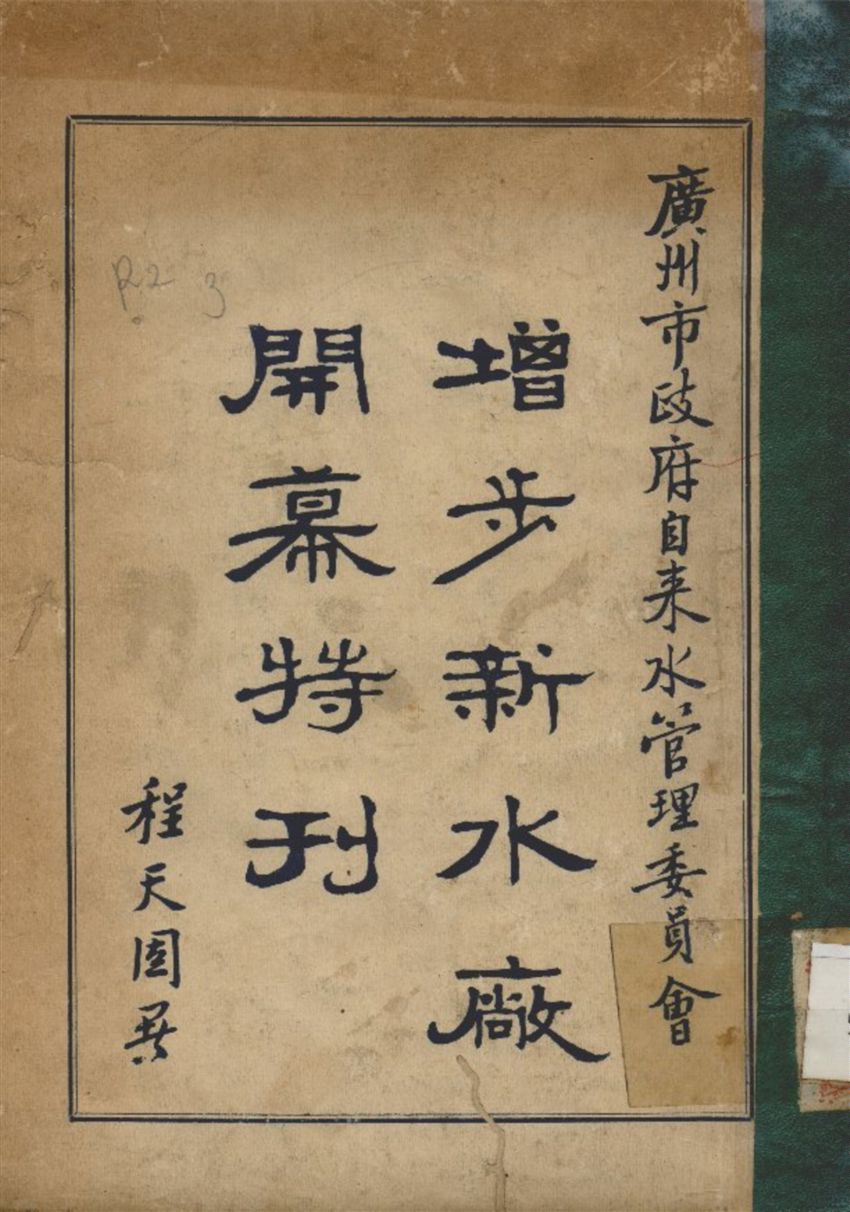 廣州市政府自来水管理委員會
增步新水廠
開幕特刊
程天固題
R2 3